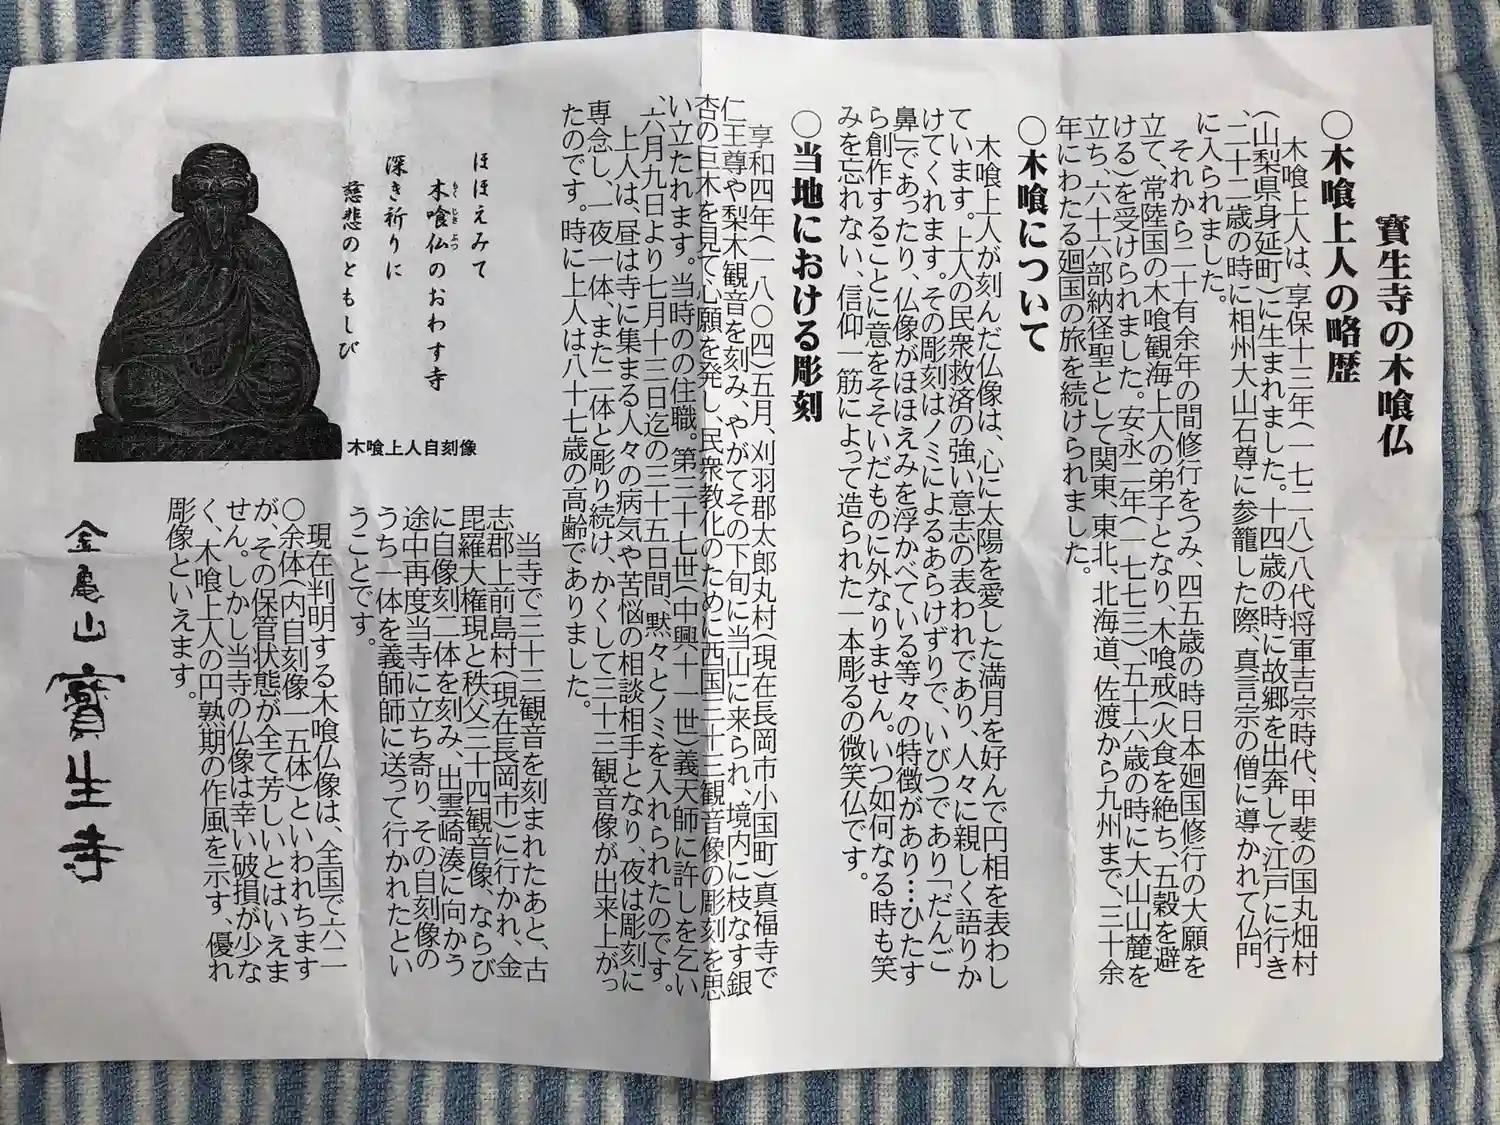 寳生寺の木喰仏
〇木喰上人の略歴
木喰上人は、享保十三年(一七二八)八代将軍吉宗時代、甲斐の国丸畑村
(山梨県身延町)に生まれました。十四歳の時に故郷を出奔して江戸に行き
、二十二歳の時に相州大山石尊に参籠した際、真言宗の僧に導かれて仏門
に入られました。
それから二十有余年の間修行をつみ、四五歳の時日本廻国修行の大願を
立て、常陸国の木喰観海上人の弟子となり、木喰戒(火食を絶ち、五穀を避
ける)を受けられました。安永二年(一七七三)、五十六歳の時に大山山麓を
立ち、六十六部納径聖として関東、東北、北海道、佐渡から九州まで、三十余
年にわたる廻国の旅を続けられました。
〇木喰について
木喰上人が刻んだ仏像は、心に太陽を愛した満月を好んで円相を表わし
ています。上人の民衆救済の強い意志の表われであり、人々に親しく語りか
けてくれます。その彫刻はノミによるあらけずりで、いびつであり「だんご
鼻」であったり、仏像がほほえみを浮かべている等々の特徴があり…ひたす
ら創作することに意をそそいだものに外なりません。いつ如何なる時も笑
みを忘れない、信仰一筋によって造られた一本彫るの微笑仏です。
〇当地における彫刻
享和四年(一八〇四)五月、刈羽郡太郎丸村(現在長岡市小国町)真福寺で
仁王尊や梨木観音を刻み、やがてその下旬に当山に来られ、境内に枝なす銀
杏の巨木を見て心願を発し、民衆教化のために西国三十三観音像の彫刻を思
い立たれます。当時のの住職。第二十七世(中興十一世)義天師に許しを乞い
、六月九日より七月十三日迄の三十五日間、黙々とノミを入れられたのです。
上人は、昼は寺に集まる人々の病気や苦悩の相談相手となり、夜は彫刻に
専念し、一夜一体、また二体と彫り続け、かくして三十三観音像が出来上がっ
たのです。時に上人は八十七歳の高齢でありました。
当寺で三十三観音を刻まれたあと、古
志郡上前島村(現在長岡市)に行かれ、金
毘羅大権現と秩父三十四観音像、ならび
に自像刻二体を刻み、出雲崎湊に向かう
途中再度当寺に立ち寄り、その自刻像の
うち一体を義師師に送って行かれたとい
うことです。
現在判明する木喰仏像は、全国で六二
〇余体(内自刻像一五体)といわれちます
が、その保管状態が全て芳しいとはいえま
せん。しかし当寺の仏像は幸い破損が少な
く、木喰上人の円熟期の作風を示す、優れ
彫像といえます。
ほほえみて
木喰仏のおわす寺
もくじきぶつ
深き祈りに
慈悲のともしび
木喰上人自刻像
金亀山 寳生寺